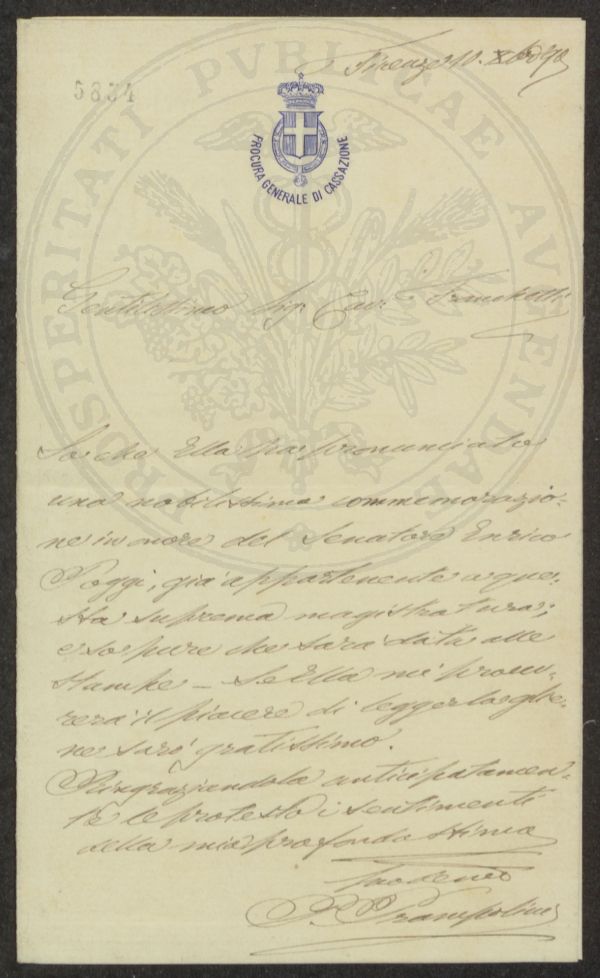 Firenze 10. Xbre 90
5834
PROCURA GENERALE DI CASSAZIONE
PROSPERITATI PVBLICAE AVGENDAE
Gentilissimo Sig. Cav. Franchetti
So che Ella ha pronunciato
una nobilissima commemorazio-
ne in onore del Senatore Enrico
Poggi, già appartenente a que-
sta suprema magistratura;
e so pure che sarà data alle
stampe – Se Ella mi procu-
rerà il piacere di leggerla glie-
ne sarò gratissimo.
Ringraziandola anticipatamen-
te le protesto i sentimenti
della mia profonda stima
Suo devmo
P. Trampolini